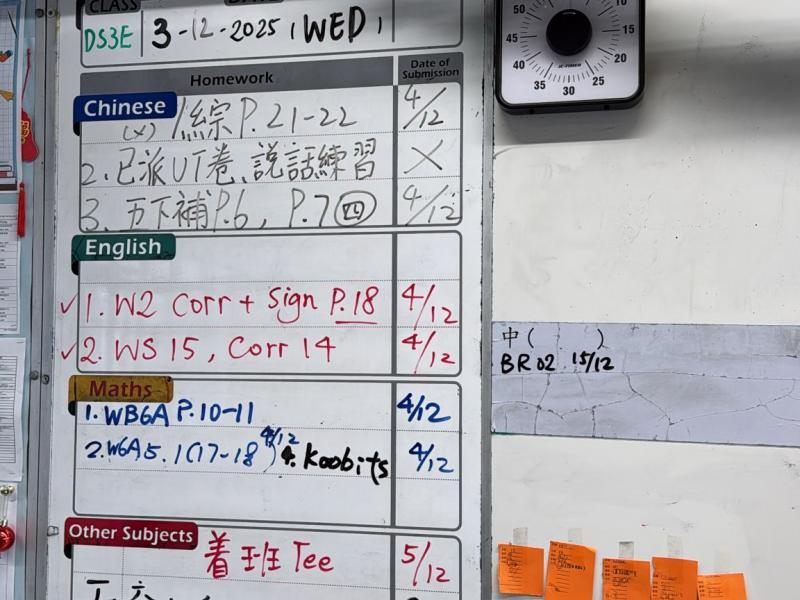 CLASS
DS3E 3-12-2025 (WED)
Homework Date of Submission
Chinese
(x) 1綜P.21-22 4/12
2.已派UT卷、說話練習 X
3.五下補P.6, P.7㊃ 4/12
English
✓1. W2 Corr + Sign P.18 4/12
✓2. WS 15, Corr 14 4/12
Maths
1.WB6A P.10-11 4/12
2.W6A5.1(17-18) 4/12 Koobits 4/12
Other Subjects
着班Tee 5/12
50 10
45 15
40 20
35 30 25
中( )
BR 02 15/12